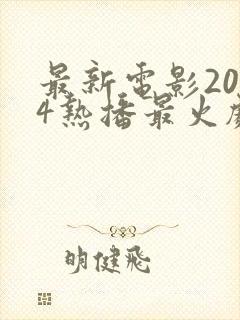 最新電影20
4熱播最火
明健飛